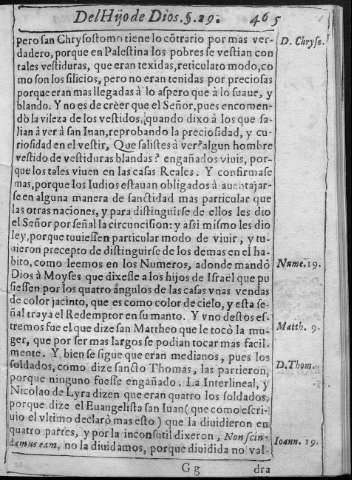 Del Hijo de Dios. §. 29. 465
pero san Chrysostomo tiene lo cõtrario por mas ver- D. Chryso.
dadero, porque en Palestina los pobres se vestian con
tales vestiduras, que eran texidas, reticulato modo, co
mo son los silicios, pero no eran tenidas por preciosas
porque eran mas llegadas à lo aspero que à lo suaue, y
blando. Y no es de creer que el Señor, pues encomen-
dò la vileza de los vestidos, quando dixo à los que sa-
lian à ver à san Iuan, reprobando la preciosidad, y cu-
riosidad en el vestir, Que salistes à ver? algun hombre
vestido de vestiduras blandas? engañados viuis, por-
que los tales viuen en las casas Reales. Y confirmase
mas, porque los Iudios estauan obligados à auentajar-
se en alguna manera de sanctidad mas particular que
las otras naciones, y para distinguirse de ellos les dio
el Señor por señal la circuncision: y assi mismo les dio
ley, porque tuuiessen particular modo de viuir, y tu-
uieron precepto de distinguirse de los demas en el ha-
bito, como leemos en los Numeros, adonde mandó Nume. 19.
Dios à Moyses que dixesse a los hijos de Israël que pu
siessen por los quatro ángulos de las casas vnas vendas
de color jacinto, que es como color de cielo, y esta se-
ñal traya el Redemptor en su manto. Y vno destos es-
tremos fue el que dize san Mattheo que le tocò la mu- Matth. 9.
ger, que por ser mas largos se podian tocar mas facil-
mente. Y bien se sigue que eran medianos, pues los
soldados, como dize sancto Thomas, las partieron, D. Thom.
porque ninguno fuesse engañado. La Interlineal, y
Nicolao de Lyra dizen que eran quatro los soldados,
porque dize el Euangelista san Iuan (que como escri-
uio el vltimo declarò mas esto) que la diuidieron en
quatro partes, y por la inconsutil dixeron, Non scin- Ioann. 19.
damus eam, no la diuidamos, porque diuidida no val-
G g dra